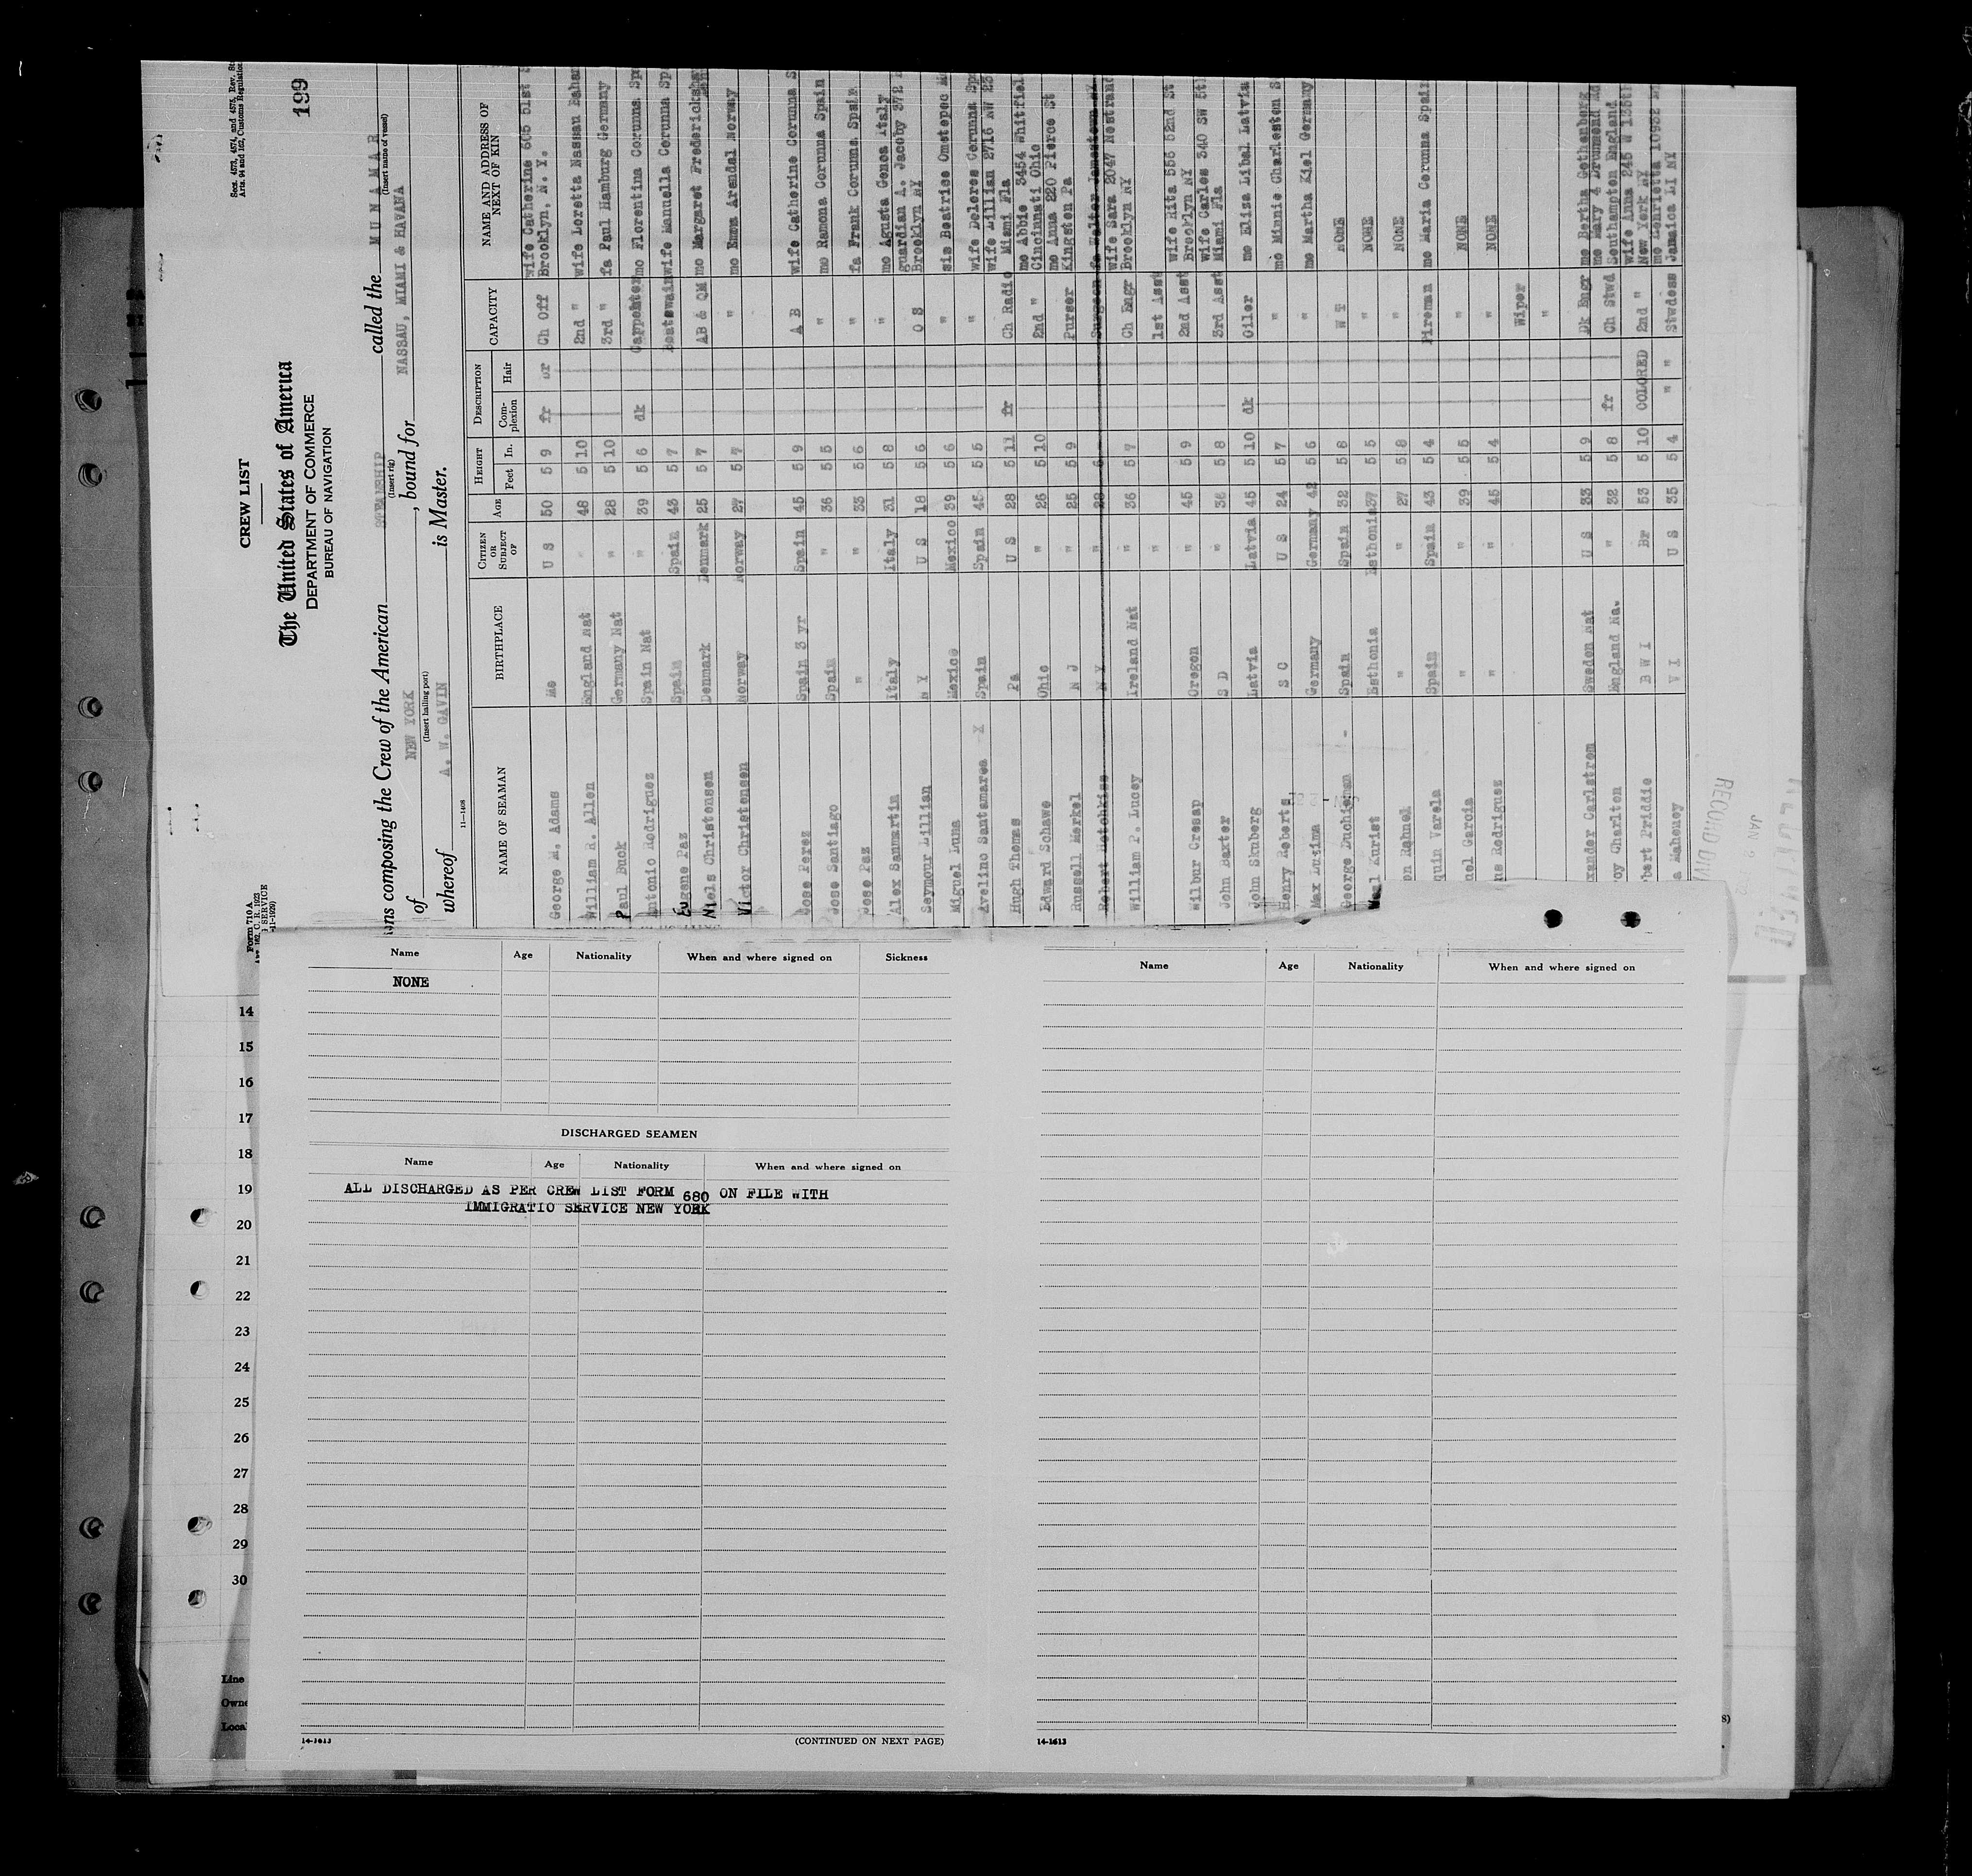 199
Secs. 4573, 4574, and 4575, Rev. St
Arts. 94 and 162, Customs Regulation
Form 710 A
SERVICE
11-1929)
CREW LIST
The United States of America
DEPARTMENT OF COMMERCE
BUREAU OF NAVIGATION
ns composing the Crew of the American STEAMSHIP called the M U N A M A R
(Insert rig) (Insert name of vessel)
of NEW YORK, bound for NASSAU, MIAMI & HAVANA
(Insert hailing port)
whereof A. W. GAVIN is Master.
11—1408
NAME OF SEAMAN BIRTHPLACE CITIZEN OR SUBJECT OF AGE HEIGHT Feet In. DESCRIPTION Complexion Hair CAPACITY NAME AND ADDRESS OF NEXT OF KIN
George M. Adams Me U S 50 5 9 fr br Ch Off wife Catherine 605 51st
Brooklyn, N. Y.
William R. Allen England Nat " 48 5 10 2nd " wife Loretta Nassau Baham
Paul Buck Germany Nat " 28 5 10 3rd " fa Paul Hamburg Germany
Antonio Rodriguez Spain Nat " 39 5 6 dk Carpenter mo Florentina Corunna Spa
Eugene Paz Spain Spain 43 5 7 Boatswain wife Manuella Corunna Sp
Niels Christensen Denmark Denmark 25 5 7 AB & QM mo Margaret Fredericksha
Victor Christensen Norway Norway 27 5 7 " mo Emma Arendal Norway
Jose Perez Spain 3 yr Spain 45 5 9 A B wife Catherine Corunna S
Jose Santiago Spain " 36 5 5 " mo Ramona Corunna Spain
Jose Paz " " 33 5 6 " fa Frank Corunna Spain
Alex Sanmartin Italy Italy 31 5 8 " mo Agusta Genoa Italy
Seymour Lillian N Y U S 18 5 6 O S guardian A. Jacoby 372
Brooklyn NY
Miguel Luna Mexico Mexico 39 5 6 " sis Beatrice Ometepec M
Avelino Santamarea X Spain Spain 45 5 5 " wife Delores Corunna Sp
Hugh Thomas Pa U S 28 5 11 fr Ch Radio wife Lillian 2716 NW 23
Miami Fla
Edward Schawe Ohio " 26 5 10 2nd " mo Abbie 3454 Whitfiel
Cincinnati Ohio
Russell Merkel N J " 25 5 9 Purser mo Anna 220 Pierce St
Kingston Pa
Robert Hotchkiss N Y " 28 6 Surgeon fa Walter Jamestown NY
William P. Lucey Ireland Nat " 36 5 7 Ch Engr wife Sara 2047 Nostrand
Brooklyn NY
" 1st Asst
Wilbur Cressap Oregon " 45 5 9 2nd Asst wife Rita 556 52nd St
Brooklyn NY
John Baxter S D " 36 5 8 3rd Asst wife Carles 340 SW 5t
Miami Fla
John Skuberg Latvia Latvia 45 5 10 dk Oiler mo Eliza Libal Latvia
Henry Roberts S C U S 24 5 7 " mo Minnie Charleston S
Max Germany Germany 42 5 6 " mo Martha Kiel Germany
George Spain Spain 32 5 8 W T NONE
Kurist Esthonia Esthonia 37 5 5 " NONE
on Rahnel " " 27 5 8 " NONE
quin Varela Spain Spain 43 5 4 Fireman mo Maria Corunna Spain
nel Garcia " " 39 5 5 " NONE
Rodriguez " " 45 5 4 " NONE
Wiper
"
xander Carlstrom Sweden Nat U S 33 5 9 Dk Engr mo Bertha Gothenberg
oy Charlton England Na. " 32 5 8 fr Ch Stwd mo Mary 4 Drummond Rd
Southampton England
bert Priddie B W I Br 53 5 10 COLORED 2nd " wife Anna 245 W 135t
New York NY
a Mahoney V I U S 35 5 4 " " Stwdess mo Henrietta 10932
Jamaica LI NY
Name Age Nationality When and where signed on Sickness
NONE
DISCHARGED SEAMEN
Name Age Nationality When and where signed on
ALL DISCHARGED AS PER CREW LIST FORM 680 ON FILE WITH
IMMIGRATIO SERVICE NEW YORK
14-1613
(CONTINUED ON NEXT PAGE)
Name Age Nationality When and where signed on
14-1613
14
15
16
17
18
19
20
21
22
23
24
25
26
27
28
29
30
Line
Owne
Loca
8)